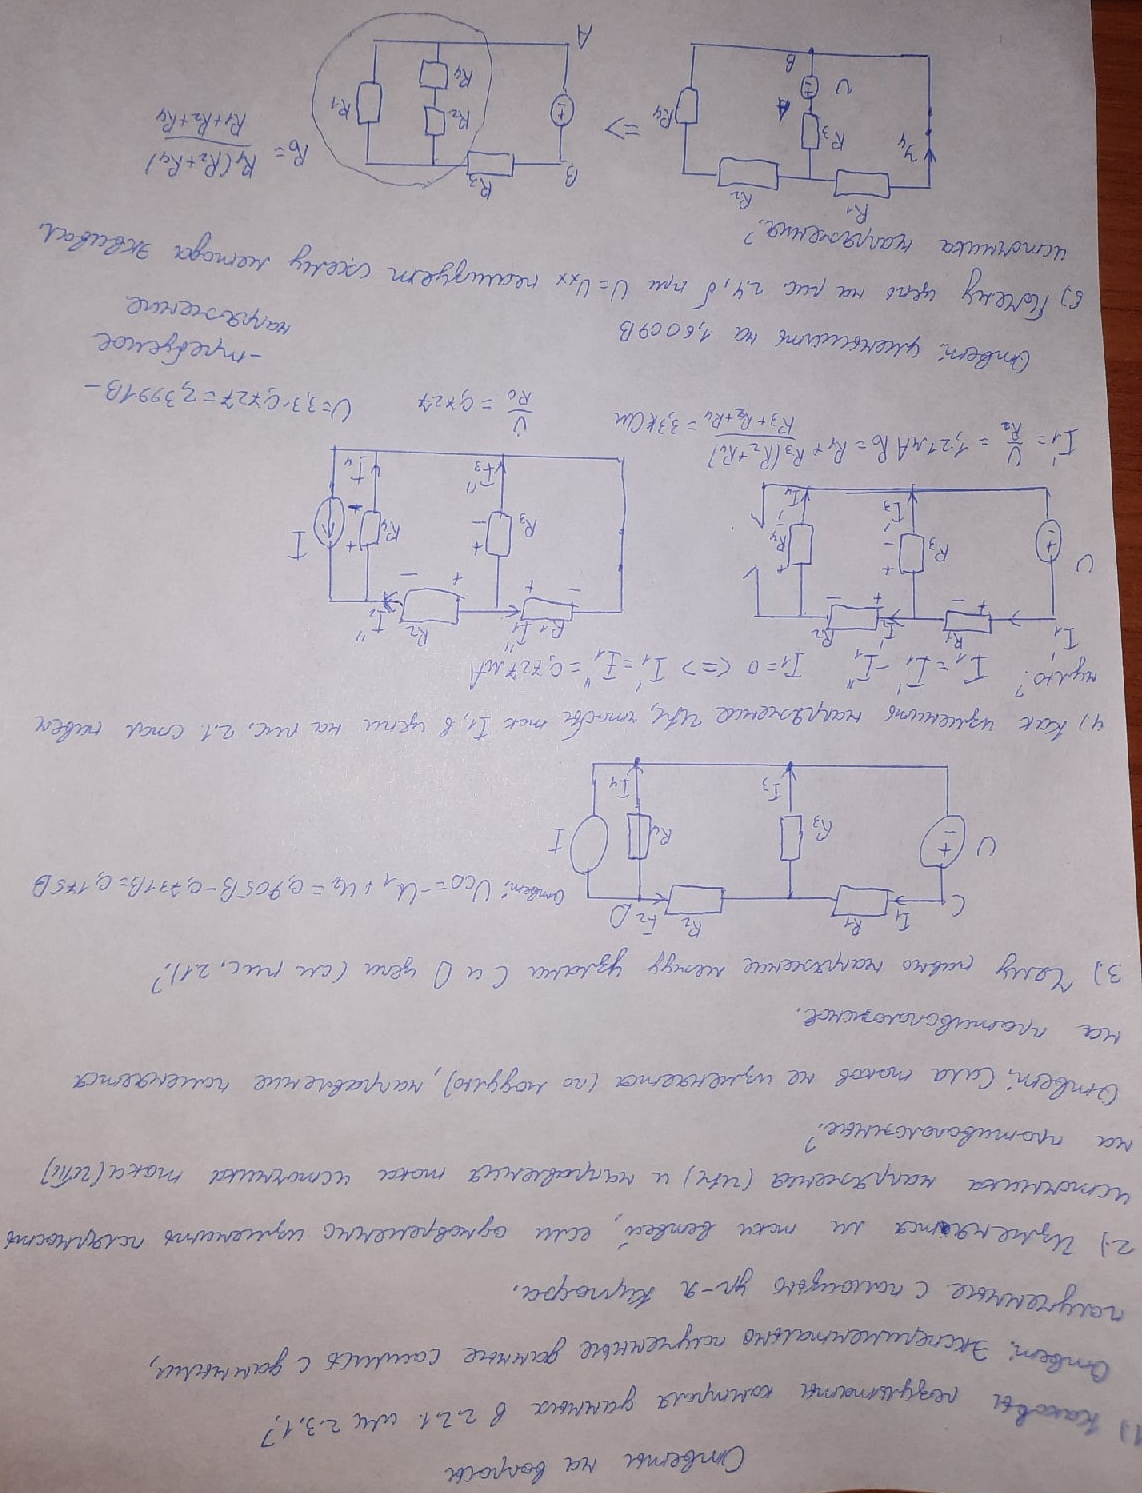 Ответы на вопросы
1) Каковы результаты контроля данных в 2.2.1. или 2.3.1?
Ответ: Экспериментально полученные данные сошлись с данными,
полученные с помощью ур-я Кирхгофа.
2) Изменятся ли токи ветвей, если одновременно изменить полярность
источника напряжения (ИН) и направления тока источника тока (ИТ)
на противоположные?
Ответ: Сила токов не изменяется (по модулю), направление поменяется
на противоположное.
3) Чему равно напряжение между узлами C и D цепи (см рис. 2.1).?
C I1 R1 R2 I2 D
U R3 R4 I
I3 I4
Ответ: UCD = -U1 + U2 = 0,905В - 0,731В = 0,175В
4) Как изменить напряжение ИН, чтобы ток I1, в цепи на рис. 2.1. стал равен
нулю? I1 = I1' - I1'' I1 = 0 <=> I1' = I1'' = 0,727мА
I1' R1 I2' R2
U R3 R4
I3' I4'
R1 I1'' R2 I2''
R3 R4 I
I3'' I4
I1' = U/R2 = 1,21мА R0 = R1 + R3(R2+R4)/(R3+R2+R4) = 3,3кОм
U/R0 = 0,727 U = 3,3·0,727 = 2,3991В –
– требуемое
напряжение
Ответ: уменьшить на 1,6009В
5) Почему цепь на рис 2.4,б при U=Uхх реализует схему метода эквивал.
источника напряжения?
R1 R2
I4 R3 A U B R4
=>
B R3
R2 R4 R1
A
R0 = R1(R2+R4)/(R1+R2+R4)